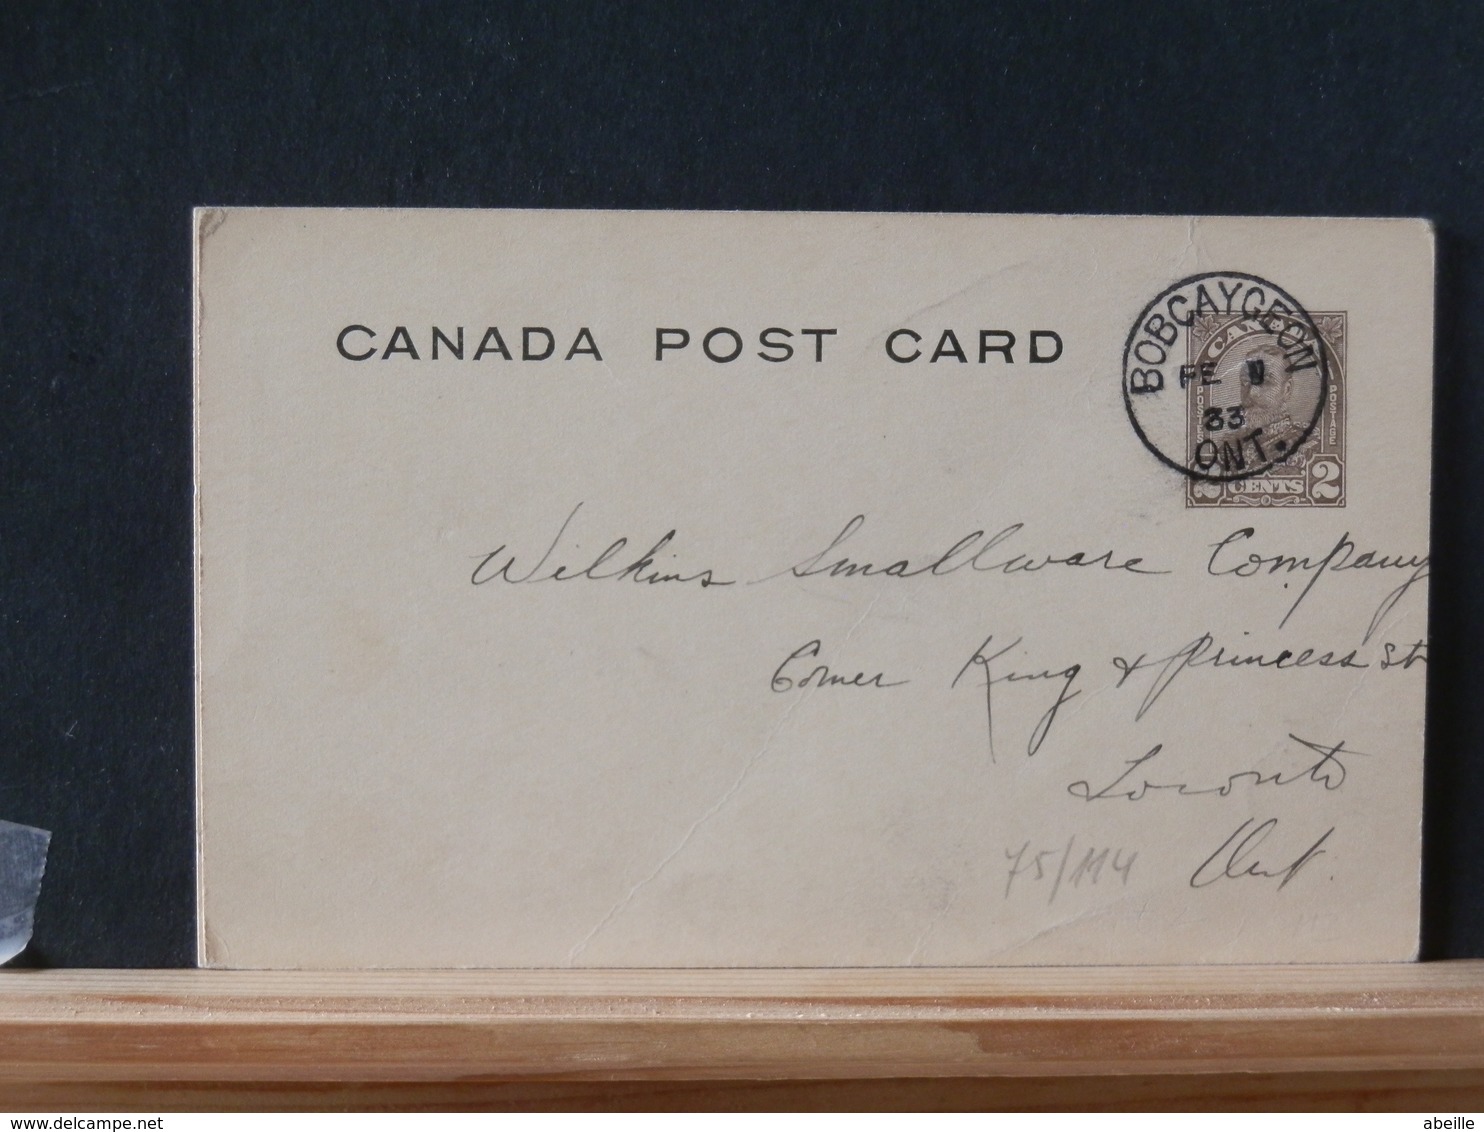 CANADA POST CARD
BOBCAYGEON
FE
33
ONT.
CANADA
POSTES
POSTAGE
2 CENTS 2
Wilkins Smallware Company
Corner King & Princess St
Toronto
Ont.
75/114
abeille